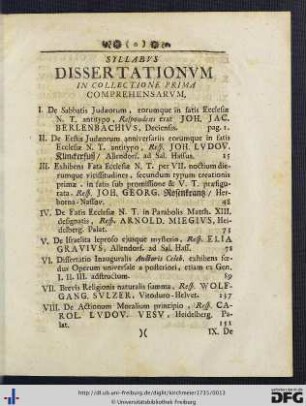 ( o )
SYLLABVS
DISSERTATIONVM
IN COLLECTIONE PRIMA
COMPREHENSARVM,
I. De Sabbatis Judæorum, eorumque in fatis Ecclesiæ
N. T. antitypo, Respondens erat JOH. JAC.
BERLENBACHIVS, Deciensis. pag. 1.
II. De Festis Judæorum anniversariis eorumque in fatis
Ecclesiæ N. T. antitypo, Resp. JOH. LVDOV.
Allendorf. ad Sal. Hassus. 25
III. Exhibens Fata Ecclesiæ N. T. per VII. noctium die-
rumque vicissitudines, secundum typum creationis
primæ, in fatis suis promissione & V. T. præfigu-
rata, Resp. JOH. GEORG. Rosenkrantz / Her-
borna-Nassav. 48
IV. De Fatis Ecclesiæ N. T. in Parabolis Matth. XIII.
designatis, Resp. ARNOLD. MIEGIVS, Hei-
delberg. Palat. 71
V. De Israelita leproso ejusque mysterio, Resp. ELIA
GRAVIVS, Allendorf. ad Sal. Hass.
VI. Dissertatio Inauguralis Auctoris Celeb. exhibens fœ-
dus Operum universale a posteriori, etiam ex Gen.
I. II. III. adstructum. 89
VII. Brevis Religionis naturalis summa, Resp. WOLF-
GANG. SVLZER, Vitoduro-Helvet. 137
VIII. De Actionum Moralium principio, Resp. CA-
ROL. LVDOV. VESV, Heidelberg. Pa-
lat. 151
)( IX. De
http://dl.ub.uni-freiburg.de/diglit/kirchmeier1731/0013
© Universitätsbibliothek Freiburg
gefördert durch die
DFG